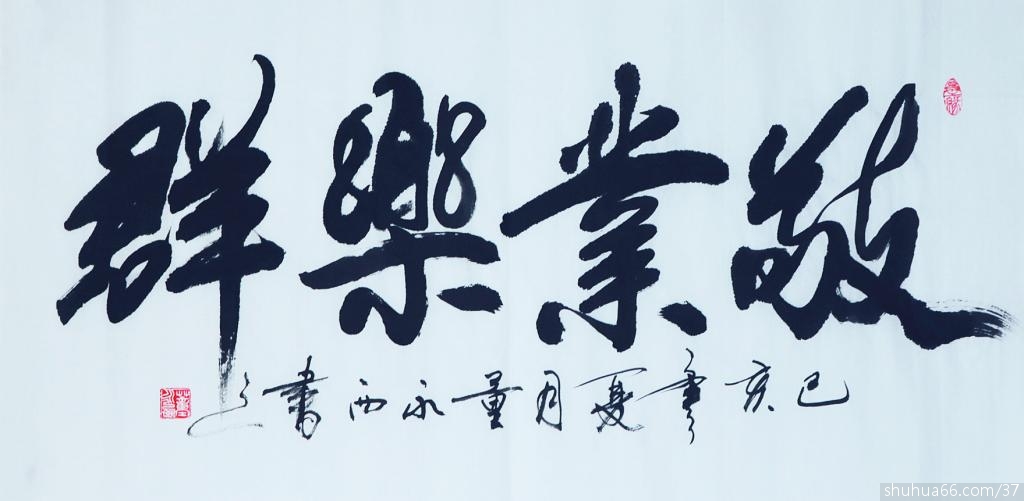 敬業樂群
己亥年夏月董永西書之
shuhua66.com/37